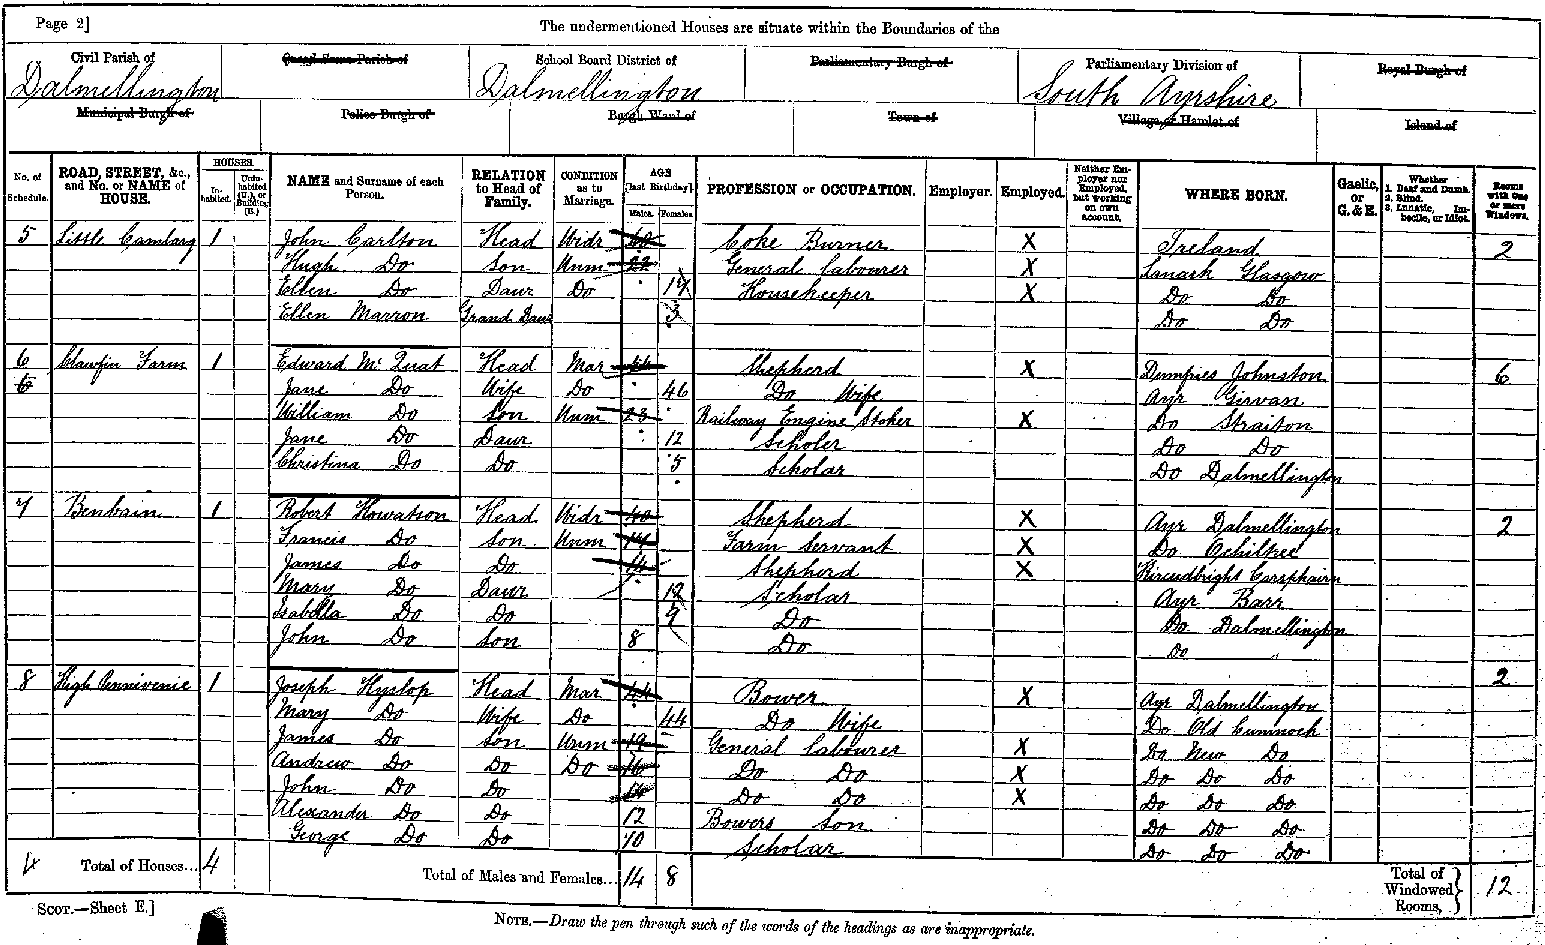 Page 2]
The undermentioned Houses are situate within the Boundaries of the
Civil Parish of Quoad Sacra Parish of School Board District of Parliamentary Burgh of Parliamentary Division of Royal Burgh of
Dalmellington Dalmellington South Ayrshire
Municipal Burgh of Police Burgh of Burgh Ward of Town of Village or Hamlet of Island of
No. of Schedule. ROAD, STREET, &c., and No. or NAME of HOUSE. HOUSES. Inhabited. Uninhabited (U.), or Building (B.) NAME and Surname of each Person. RELATION to Head of Family. CONDITION as to Marriage. AGE [last Birthday]. Males. Females. PROFESSION or OCCUPATION. Employer. Employed. Neither Employer nor Employed, but working on own account. WHERE BORN. Gaelic, or G. & E. Whether 1. Deaf and Dumb. 2. Blind. 3. Lunatic, Imbecile, or Idiot. Rooms with One or more Windows.
5 Little Camlarg 1 John Carlton Head Widr 60 Coke Burner X Ireland 2
Hugh Do Son Unm 22 General Labourer X Lanark Glasgow
Ellen Do Daur Do 17 Housekeeper X Do Do
Ellen Marron Grand Daur 3 Do Do
6 Clawfin Farm 1 Edward Mc Quat Head Mar 44 Shepherd X Dumfries Johnston 6
6 Jane Do Wife Do 46 Do Wife Ayr Girvan
William Do Son Unm 23 Railway Engine Stoker X Do Straiton
Jane Do Daur 12 Scholer Do Do
Christina Do Do 5 Scholar Do Dalmellington
7 Benbain 1 Robert Howatson Head Widr 40 Shepherd X Ayr Dalmellington 2
Francis Do Son Unm Farm Servant X Do Ochiltree
James Do Do 14 Shepherd X Kircudbright Carsphairn
Mary Do Daur 12 Scholar Ayr Barr
Isabella Do Do 9 Do Do Dalmellington
John Do Son 8 Do Do "
8 High Pennivenie 1 Joseph Hyslop Head Mar 44 Bower X Ayr Dalmellington 2
Mary Do Wife Do 44 Do Wife Do Old Cumnock
James Do Son Unm 19 General Labourer X Do New Do
Andrew Do Do Do 16 Do Do X Do Do Do
John Do Do 14 Do Do X Do Do Do
Alexander Do Do 12 Bowers Son Do Do Do
George Do Do 10 Scholar Do Do Do
4 Total of Houses... 4 Total of Males and Females... 14 8 Total of Windowed Rooms, 12
SCOT.—Sheet E.]
NOTE.—Draw the pen through such of the words of the headings as are inappropriate.